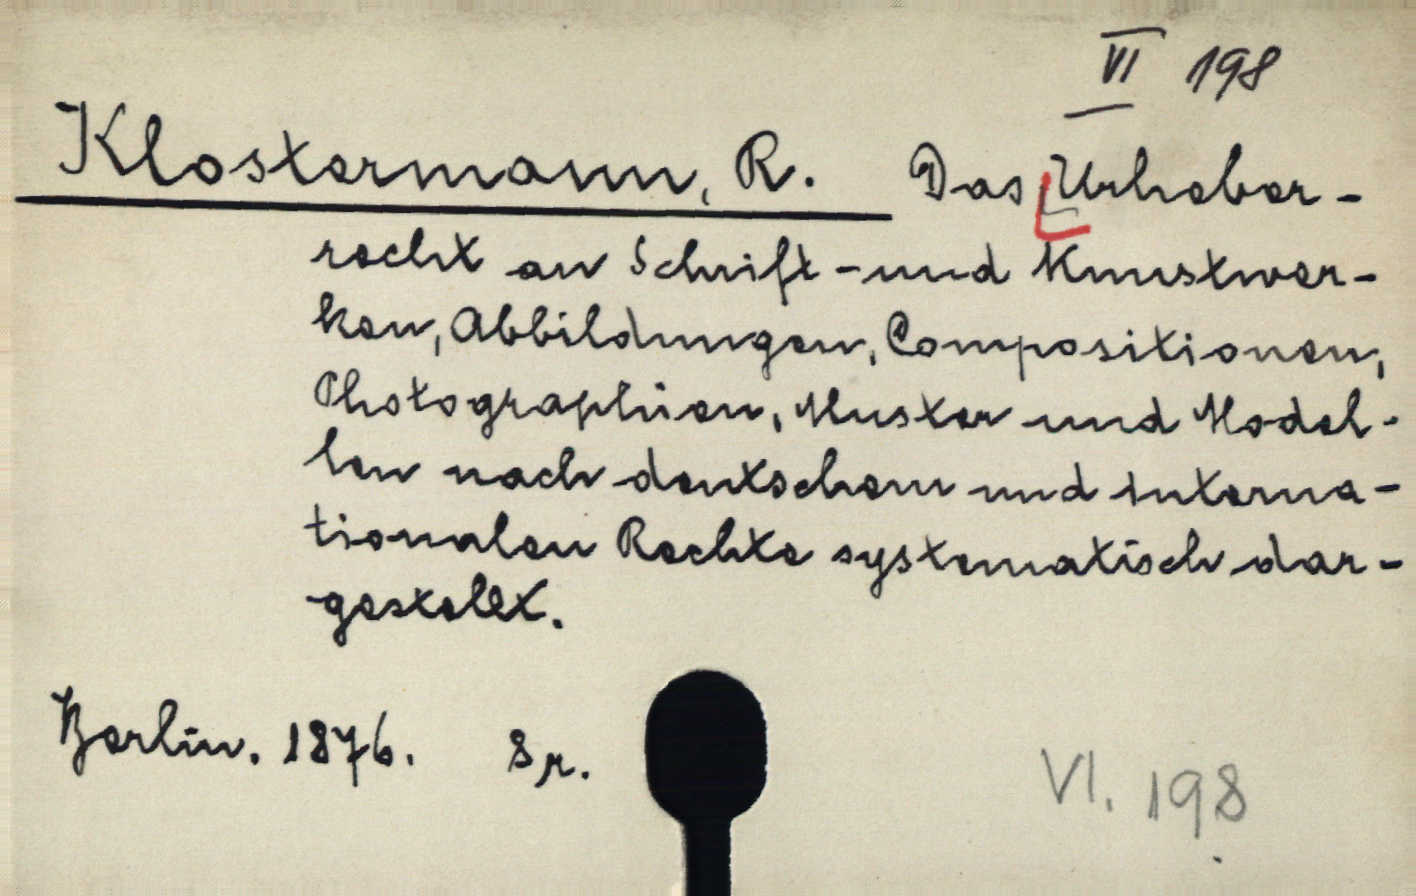 VI 198
Klostermann, R. Das Urheber-
recht an Schrift- und Kunstwer-
ken, Abbildungen, Compositionen,
Photographien, Muster und Model-
len nach deutschem und interna-
tionalen Rechte systematisch dar-
gestellt.
Berlin. 1876. 8r.
VI. 198